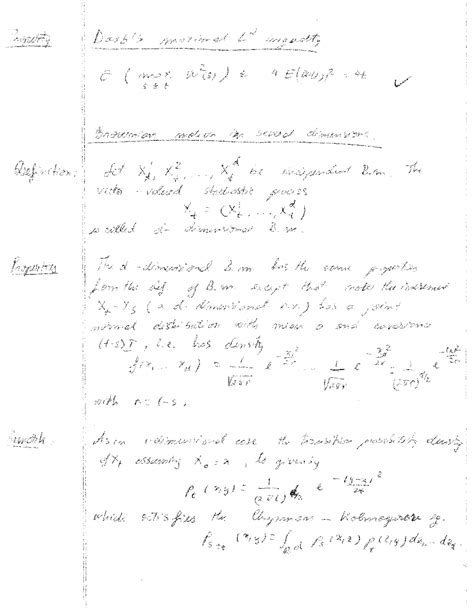 Property Doob's maximal L² inequality
E ( max s≤t W²(s) ) ≤ 4 E(W(t))² = 4t ✓
Brownian motion in several dimensions.
Definition: Let X_t^1, X_t^2, ..., X_t^d be independent B.m. The
vector-valued stochastic process
X_t = (X_t^1, ..., X_t^d)
is called d-dimensional B.m.
Properties The d-dimensional B.m. has the same properties
from the def. of B.m except that now the increment
X_t - X_s (a d-dimensional r.v.) has a joint
normal distribution with mean 0 and covariance
(t-s) I, i.e. has density
with r = t-s.
As in 1-dimensional case the transition probability density
of X_t assuming X_0 = x, is given by
p_t (x,y) = 1/(2πt)^{d/2} e^{-|y-x|²/2t}
which satisfies the Chapman - Kolmogorov eq.
p_{s+t} (x,y) = ∫_{R^d} p_s (x,z) p_t (z,y) dz_1 ... dz_d